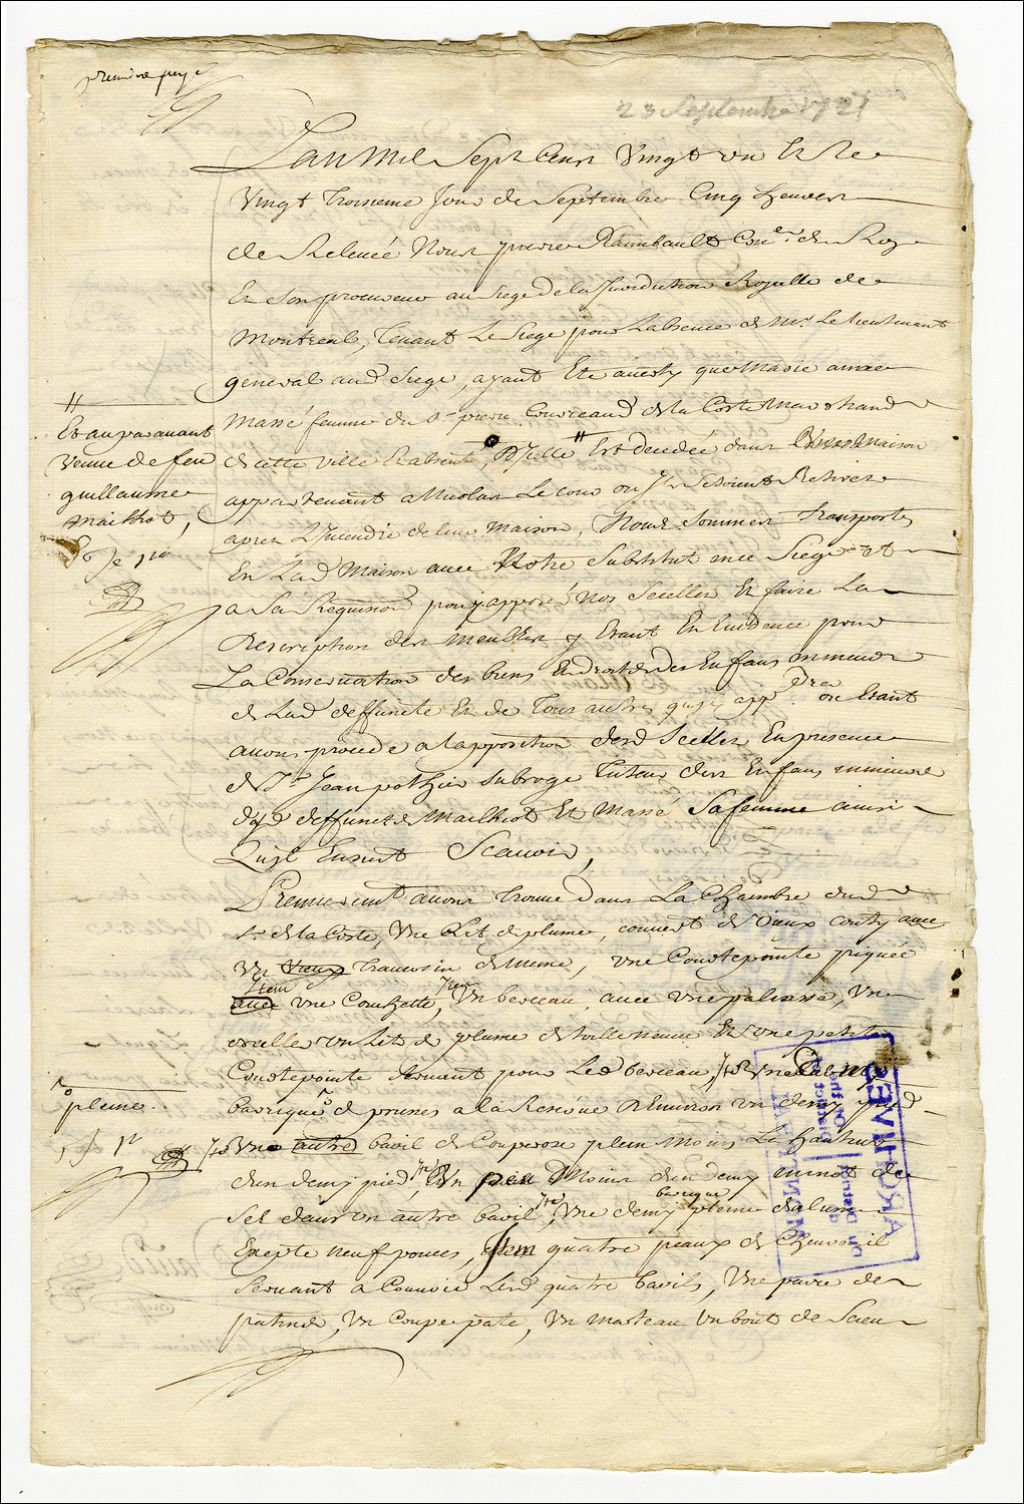 premiere page
23 Septembre 1721
Lan Mil Sept Cent Vingt un Et Le
Vingt troisieme Jour de Septembre Cinq heures
de Relevée Nous pierre Raimbault Con.er du Roy
Et Son procureur au Siege de la Jurisdiction Royalle de
Montreal, tenant Le Siege pour Labsence de Mr. Le lieutenant
general aud Siege, ayant Ete averty que Marie anne
Massé femme du Sr pierre Coureaud de la Coste Marchand
de cette ville Et absent, Est decedée dans maison
appartenant a Nicolas Le cour ou Ils Setoient Retirez
apres Lincendie de leur maison, Nous Sommes transportez
En Lad Maison avec Notre Substitut en ce Siege et
a Sa Requision pour y apposer Nos Scellez Et faire La
Description des meubles y Etant En Evidence pour
La Conservation des biens Et droits des Enfans mineurs
de Lad deffuncte Et de Tous autres quil app.dra ou Etant
avons procedé a lapposition desd Scellez En presence
de Sr Jean pothier subrogé Tuteur des Enfans mineurs
dud deffunct Mailhot Et Massé Sa femme ainsi
quil Ensuit Scavoir,
Premierement avons trouvé dans La Chambre dud
Sr de la Coste, Un Lit de plume, couvert de vieux coutty avec
Un vieux traversin de meme, une Courtepointe piquée
Item
avec une Couchette, Item Un berceau, avec une paliasse, Un
oreiller un Lit de plume de toille neuve Et une petite
Courtepointe Servant pour Led berceau, Item Une
barrique de prunes a la Reserve Denviron un demy pied
Item Une autre baril de Couperose plein Moins La hauteur
dun demy pied, Item Un peu Moins dun demy minot de
barrique
Sel dans un autre baril, Item Une demy pleine dalun
Excepté neuf pouces, Item quatre peaux de Chevreuil
Servant a Couvrir Lesd quatre barils, Une paire de
patins, Un Coupe pate, Un Marteau Un bout de Scieu
Et auparavant
veuve de feu
guillaume
Mailhot,
pleine
ARCHIVES
du District
de
MONTREAL
of the
District